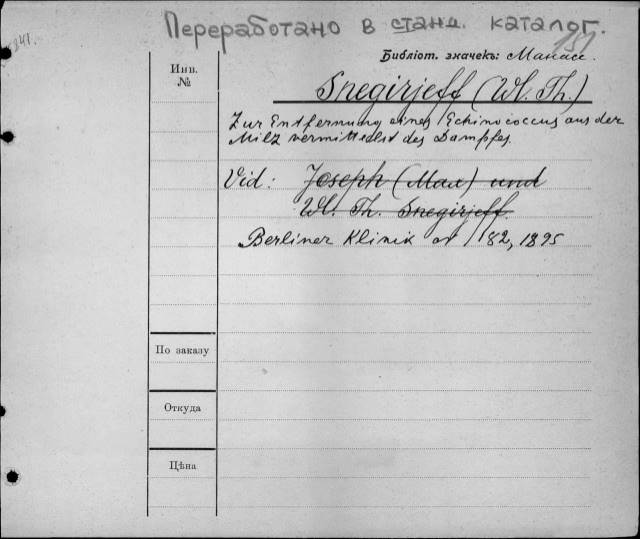 Переработано в станд. каталог.
241.
151
Библіот. значекъ: Манасс.
Инв.
№
Snegirjeff (Wl. Th.)
Zur Entfernung eines Echinococcus aus der
Milz vermittelst des Dampfes.
Vid: Joseph (Max) und
Wl. Th. Snegirjeff.
Berliner Klinik 82, 1895
По заказу
Откуда
Цѣна